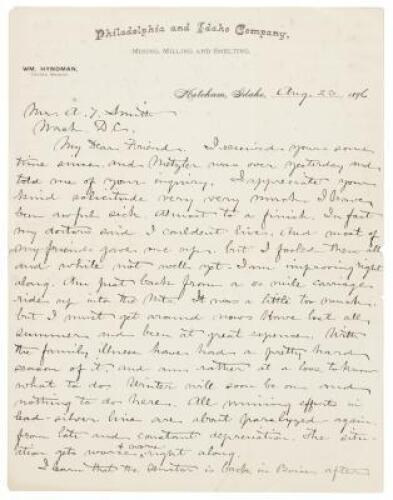 Philadelphia and Idaho Company,
MINING, MILLING AND SMELTING.
WM. HYNDMAN,
Ketcham, Idaho, Aug. 23 1896
Mr. A. T. Smith
Wash D.C.
My Dear Friend. I received yours some
time since and was over yesterday and
told me of your inquiry. I appreciate your
kind solicitude very very much. I have
been awful sick almost to a finish. In fact
my doctors said I couldent live. And most of
my friends gave me up, but I fooled them all
and while not well yet. I am improving right
along. Am just back from a 60 mile carriage
ride up into the Mts. It was a little too much.
but I must get around now. Have lost all
summer and been at great expense. With
the family illness have had a pretty hard
season of it, and am rather at a loss to know
what to do. Winter will soon be on and
nothing to do here. All mining efforts in
lead-silver line are about paralyzed again
from late and constant depreciation. The situ-
ation gets worse & worse right along.
I learn that the Senator is back in Boise after